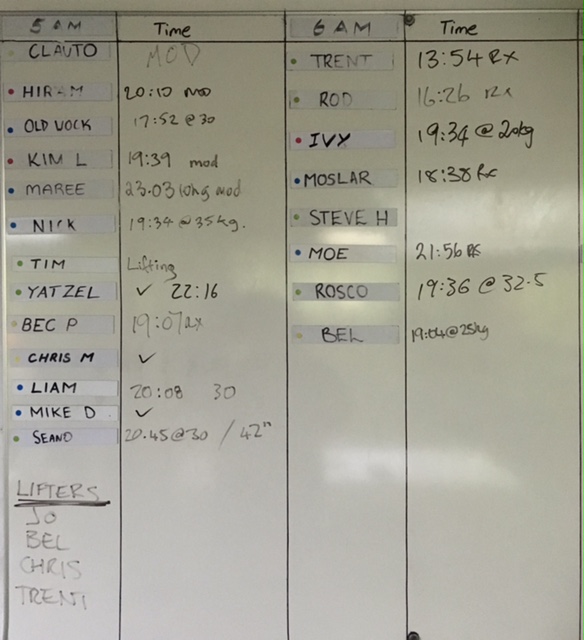 5 AM Time
CLAUTO MOD
HIRAM 20:10 mod
OLD VOCK 17:52 @ 30
KIM L 19:39 mod
MAREE 23.03 10kg mod
NICK 19:34 @ 35kg.
TIM Lifting
YATZEL ✓ 22:16
BEC P 19:07 Rx
CHRIS M ✓
LIAM 20:08 30
MIKE D ✓
SEANO 20.45@30 / 42"
LIFTERS
JO
BEL
CHRIS
TRENT
6 AM Time
TRENT 13:54 Rx
ROD 16:26 Rx
IVY 19:34 @ 20kg
MOSLAR 18:38 Rx
STEVE H
MOE 21:56 Rx
ROSCO 19:36 @ 32.5
BEL 19:04@25kg